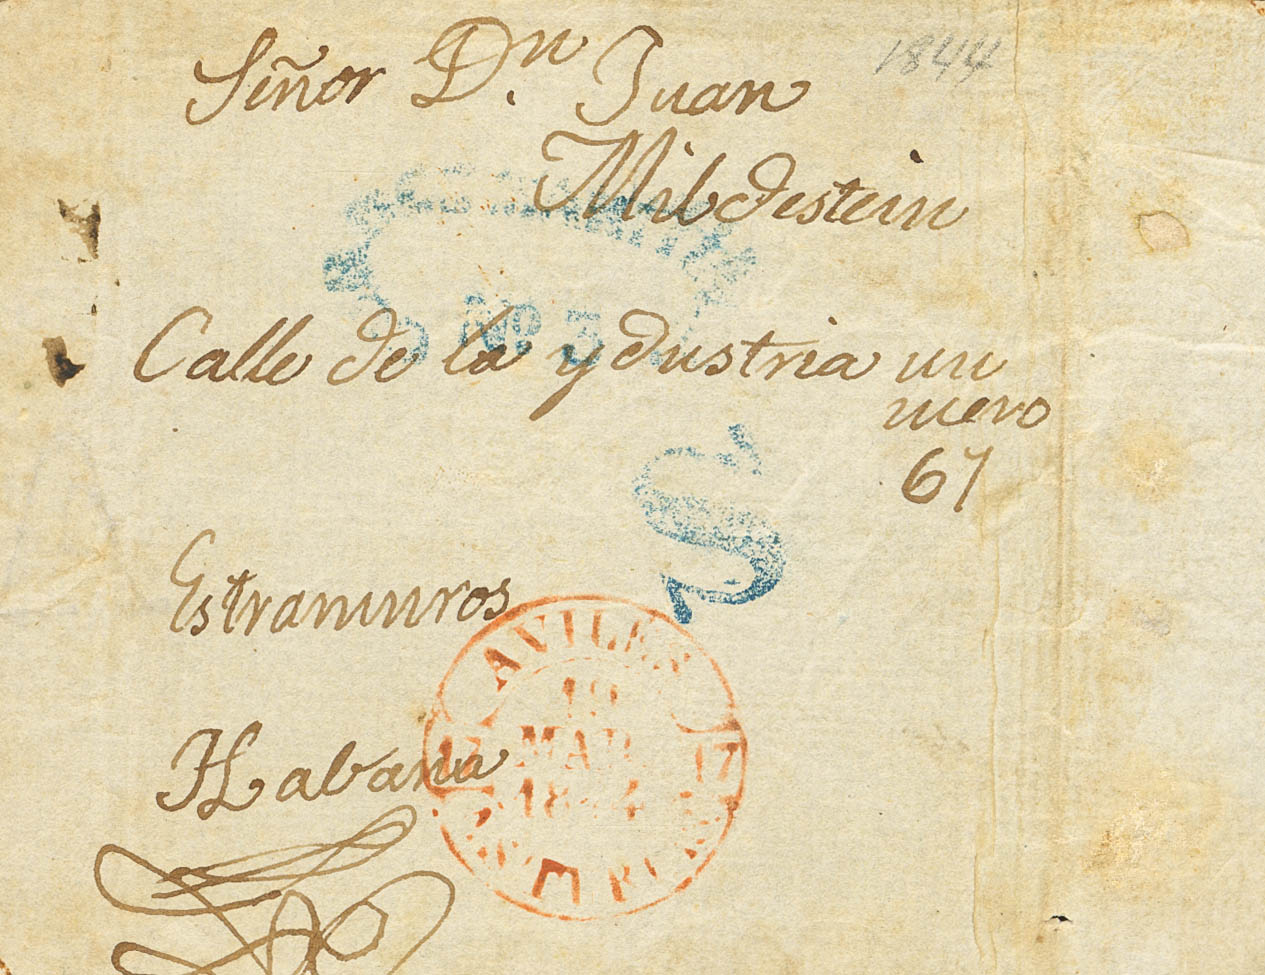 1844
Señor Dn. Juan
Mildestein
Calle de la ydustria nu
mero
67
Estramuros
Habana
Nº 3
AVILES
19
MAR
1844
17 17